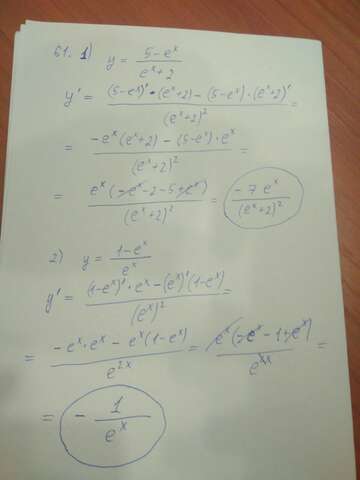 61. 1) y = (5-eˣ)/(eˣ+2)
y' = ((5-eˣ)'·(eˣ+2) - (5-eˣ)·(eˣ+2)')/(eˣ+2)² =
= (-eˣ(eˣ+2) - (5-eˣ)·eˣ)/(eˣ+2)² =
= (eˣ(-eˣ-2-5+eˣ))/(eˣ+2)² = (-7eˣ)/(eˣ+2)²
2) y = (1-eˣ)/eˣ
y' = ((1-eˣ)'·eˣ - (eˣ)'(1-eˣ))/(eˣ)² =
= (-eˣ·eˣ - eˣ(1-eˣ))/e²ˣ = (eˣ(-eˣ-1+eˣ))/e²ˣ =
= - 1/eˣ